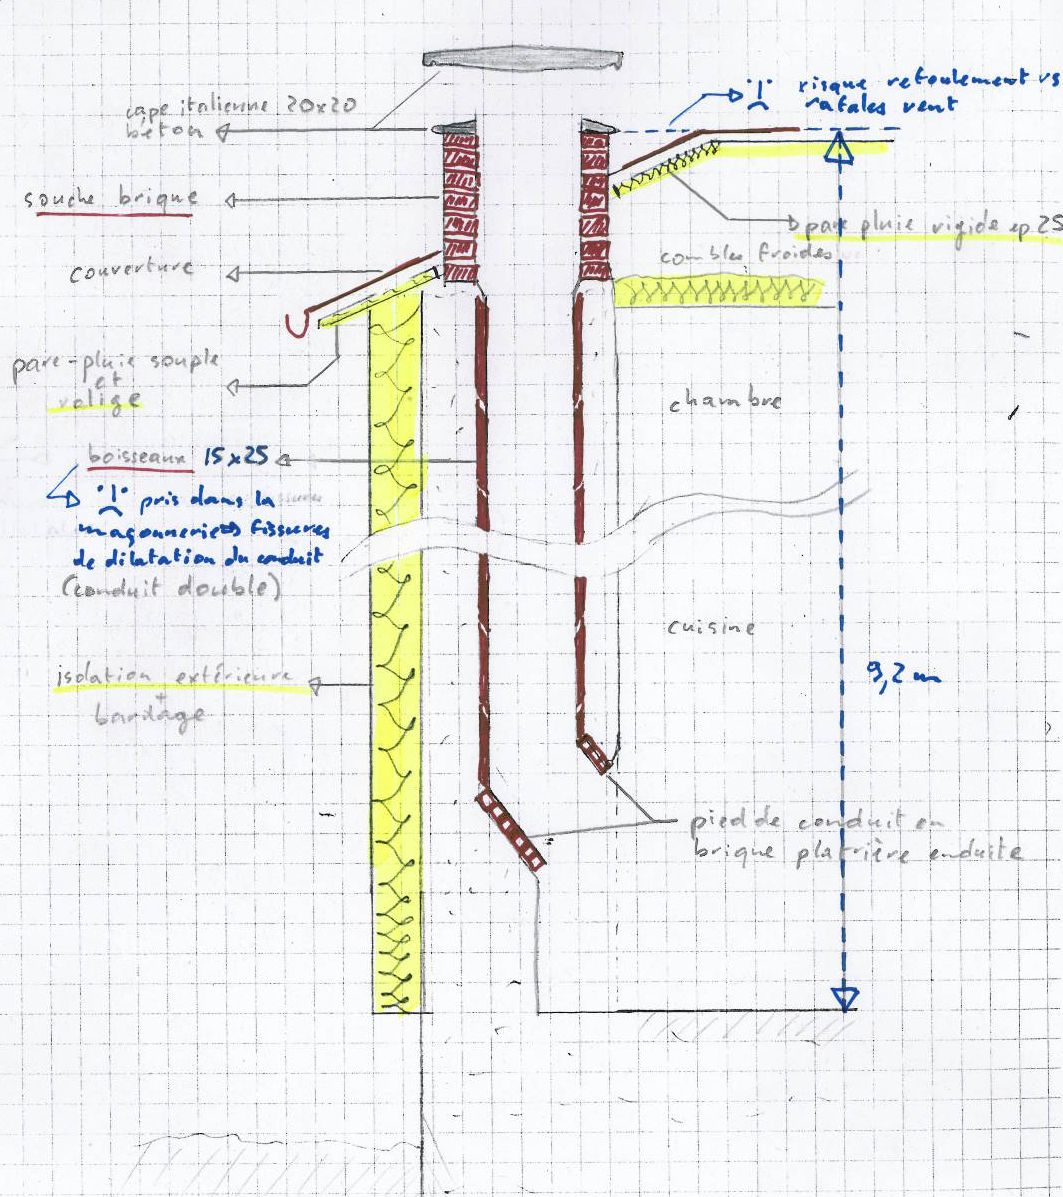 cape italienne 20x20
béton
risque refoulement vs
rafales vent
souche brique
pare pluie rigide ep 25
combles froides
couverture
pare-pluie souple
et
volige
chambre
boisseaux 15x25
pris dans la
maçonnerie → fissures
de dilatation du conduit
(conduit double)
cuisine
isolation extérieure
+
bardage
9,2 m
pied de conduit en
brique platrière enduite